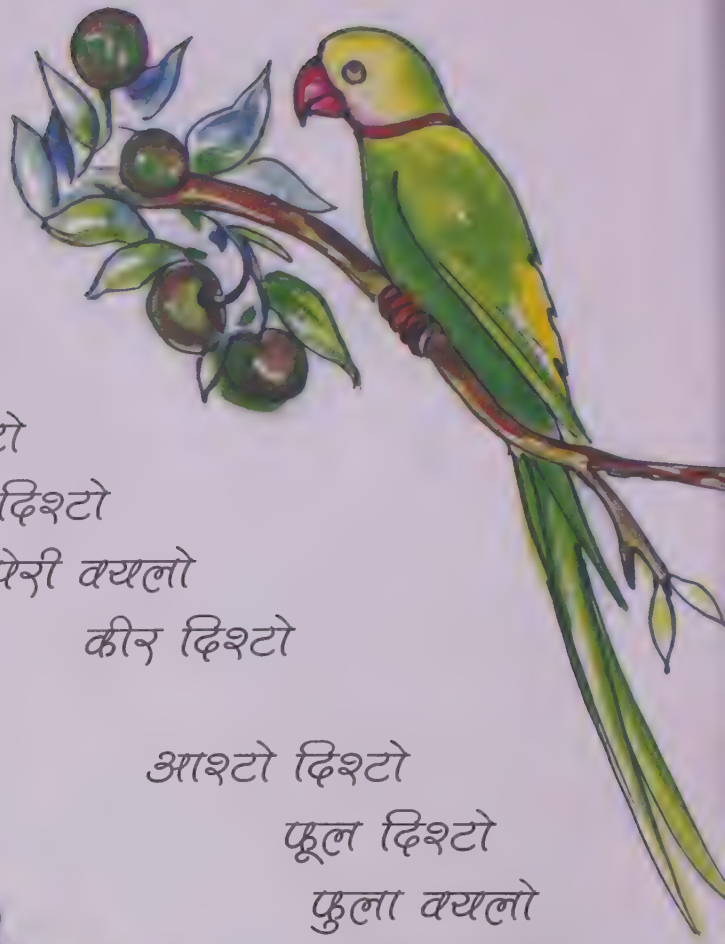 दिश्टो
पेरी वयलो
कीर दिश्टो
आश्टो दिश्टो
फूल दिश्टो
फुला वयलो